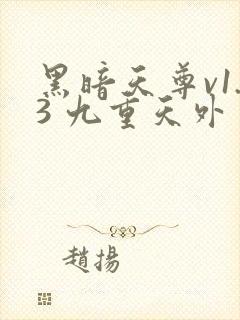 黑暗天尊v1.
3 九重天外
趙揚